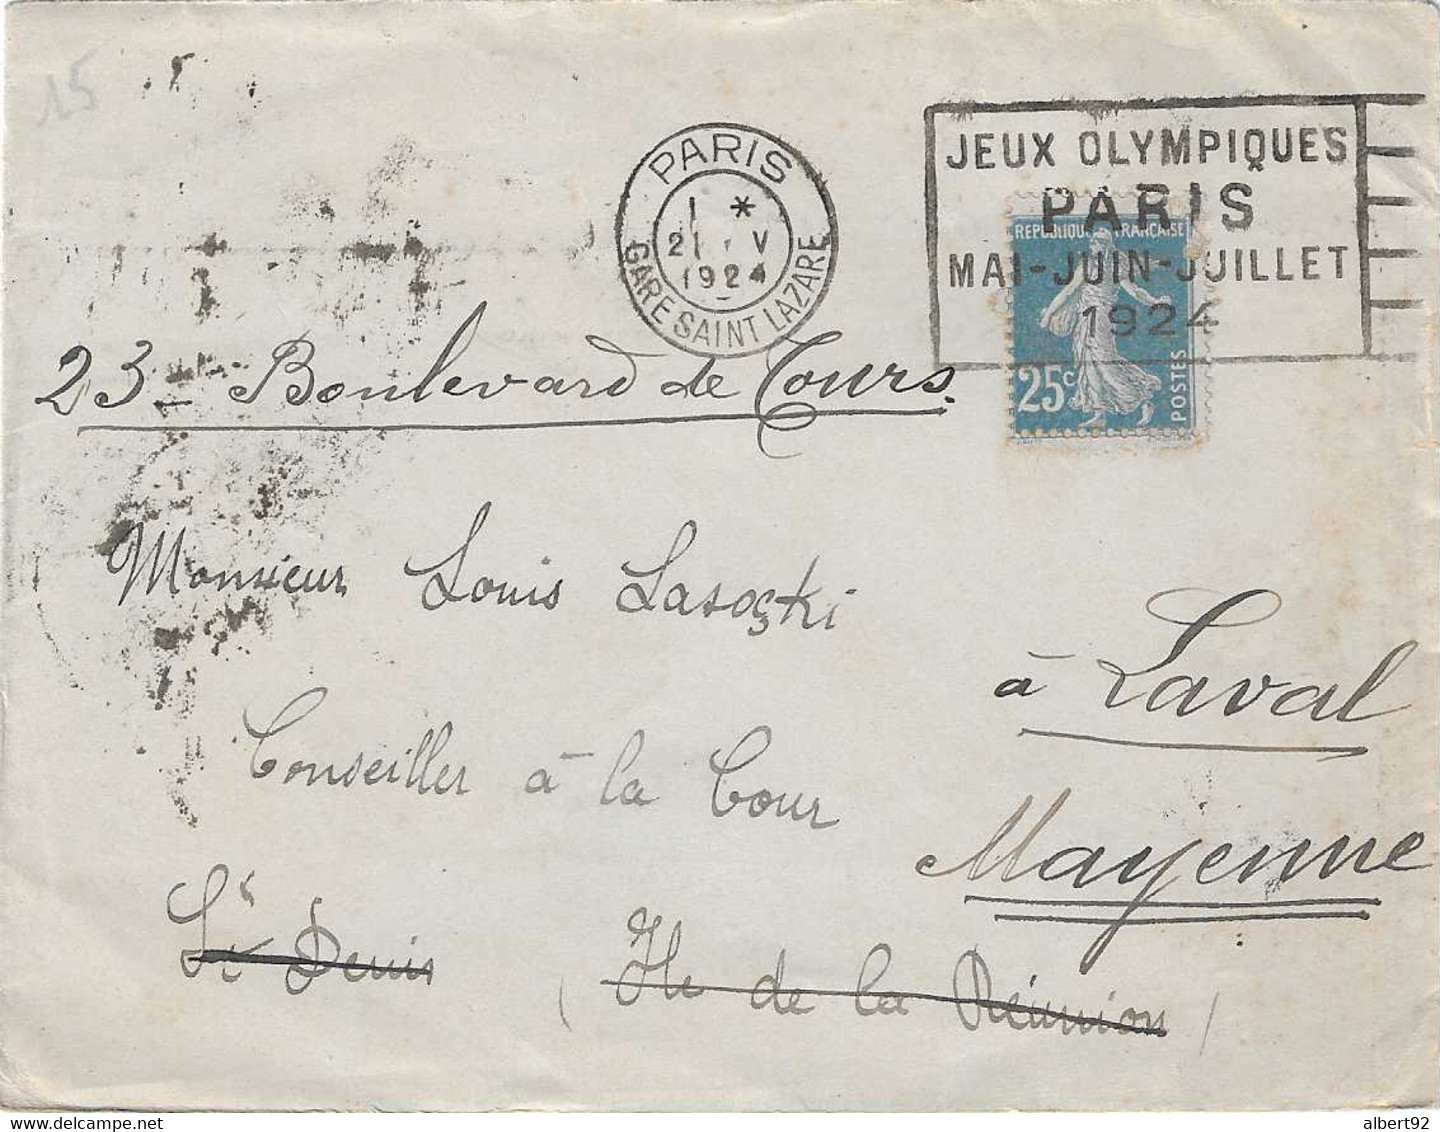 15
PARIS
1 *
21 · V
1924
GARE SAINT LAZARE
JEUX OLYMPIQUES
PARIS
MAI-JUIN-JUILLET
1924
REPUBLIQUE FRANCAISE
25c
POSTES
23 - Boulevard de Tours.
Monsieur Louis Lasoçki
à Laval
Conseiller à la Cour
Mayenne
St Denis
(Ile de la Réunion)
albert92